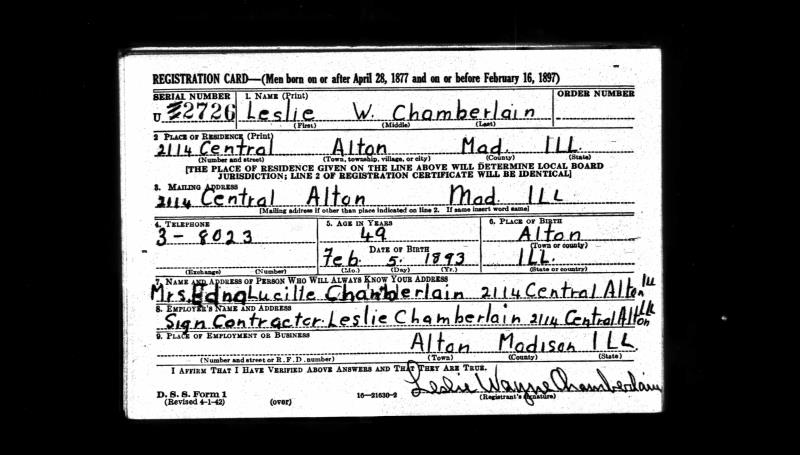 REGISTRATION CARD—(Men born on or after April 28, 1877 and on or before February 16, 1897)
SERIAL NUMBER 1. NAME (Print) ORDER NUMBER
U 2726 Leslie W. Chamberlain
(First) (Middle) (Last)
2 PLACE OF RESIDENCE (Print)
2114 Central Alton Mad. ILL.
(Number and street) (Town, township, village, or city) (County) (State)
[THE PLACE OF RESIDENCE GIVEN ON THE LINE ABOVE WILL DETERMINE LOCAL BOARD
JURISDICTION; LINE 2 OF REGISTRATION CERTIFICATE WILL BE IDENTICAL]
3. MAILING ADDRESS
2114 Central Alton Mad. ILL
[Mailing address if other than place indicated on line 2. If same insert word same]
4. TELEPHONE 5. AGE IN YEARS 6. PLACE OF BIRTH
3-8023 49 Alton
(Town or county)
DATE OF BIRTH
Feb. 5. 1893 ILL.
(Exchange) (Number) (Mo.) (Day) (Yr.) (State or country)
7. NAME AND ADDRESS OF PERSON WHO WILL ALWAYS KNOW YOUR ADDRESS
Mrs. Edna Lucille Chamberlain 2114 Central Alton Ill
8. EMPLOYER'S NAME AND ADDRESS
Sign Contractor. Leslie Chamberlain 2114 Central Alton Ill
9. PLACE OF EMPLOYMENT OR BUSINESS
Alton Madison ILL
(Number and street or R. F. D. number) (Town) (County) (State)
I AFFIRM THAT I HAVE VERIFIED ABOVE ANSWERS AND THAT THEY ARE TRUE.
Leslie Wayne Chamberlain
D. S. S. Form 1 (Registrant's signature)
(Revised 4-1-42) (over) 16—21630-2